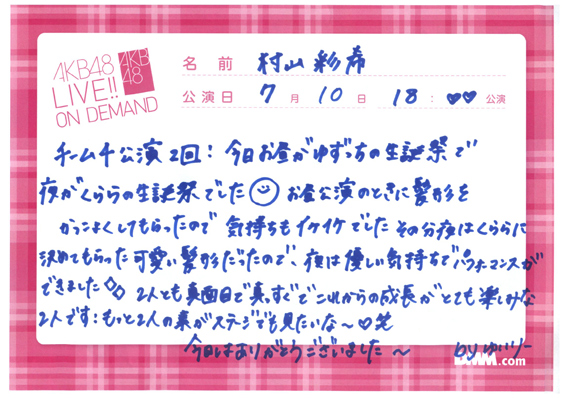 AKB48
LIVE!!
ON DEMAND
AKB
48
名前 村山彩希
公演日 7月10日 18:♡♡公演
チーム4公演2回！今日お昼がゆずっちの生誕祭で
夜がくららの生誕祭でした☺お昼公演のときに髪形を
かっこよくしてもらったので気持ちもイケイケでした その分夜はくららに
決めてもらった可愛い髪形だったので、夜は優しい気持ちでパフォーマンスが
できました◇◇ 2人とも真面目で真っすぐでこれからの成長がとても楽しみな
2人です！もっと2人の事がステージでも見たいな〜♡笑
今日はありがとうございました〜 byゆいりー
DMM.com